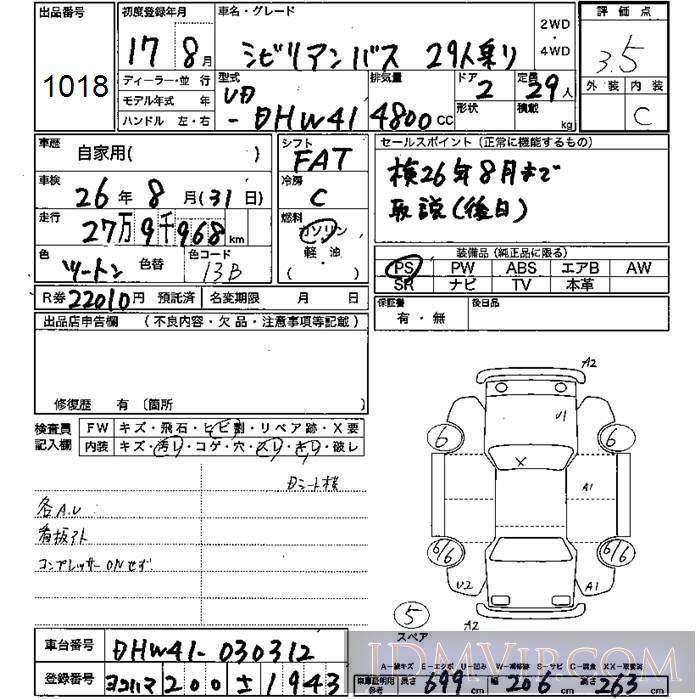 出品番号
1018
初度登録年月
17年 8月
車名・グレード
シビリアンバス 29人乗り
2WD
・
4WD
評価点
3.5
外装 内装
C
ディーラー・並 行
モデル年式 年
ハンドル 左・右
型式
-DHW41
排気量
4800cc
ドア
2
形状
定員
29人
積載
kg
車歴
自家用( )
車検
26年 8月(31日)
走行
27万9千968km
色
ツートン
色替
色コード
13B
シフト
FAT
冷房
C
燃料
ガソリン
軽・油
( )
セールスポイント(正常に機能するもの)
検26年8月まで
取説(後日)
装備品(純正品に限る)
PS PW ABS エアB AW
SR ナビ TV 本革
R券22010円 預託済 名変期限 月 日
保証書
有・無
後日品
出品店申告欄 (不良内容・欠品・注意事項等記載)
修復歴 有〔箇所
検査員
記入欄
FW キズ・飛石・ヒビ割・リペア跡・X要
内装 キズ・汚れ・コゲ・穴・スリ・キリ・破レ
各A.U
看板アト
コンプレッサーONせず
A2
U1
6
6
X
A1
6/6
6/6
U2
A1
A2
5
スペア
車台番号 DHW41-030312
登録番号 ヨコハマ200さ1943
A-線キズ E-エクボ U-凹み W-補修跡 S-サビ C-腐食 XX-取替済
車庫証明用
参考
長さ699cm 幅206cm 高さ263cm
IDMVIP.COM